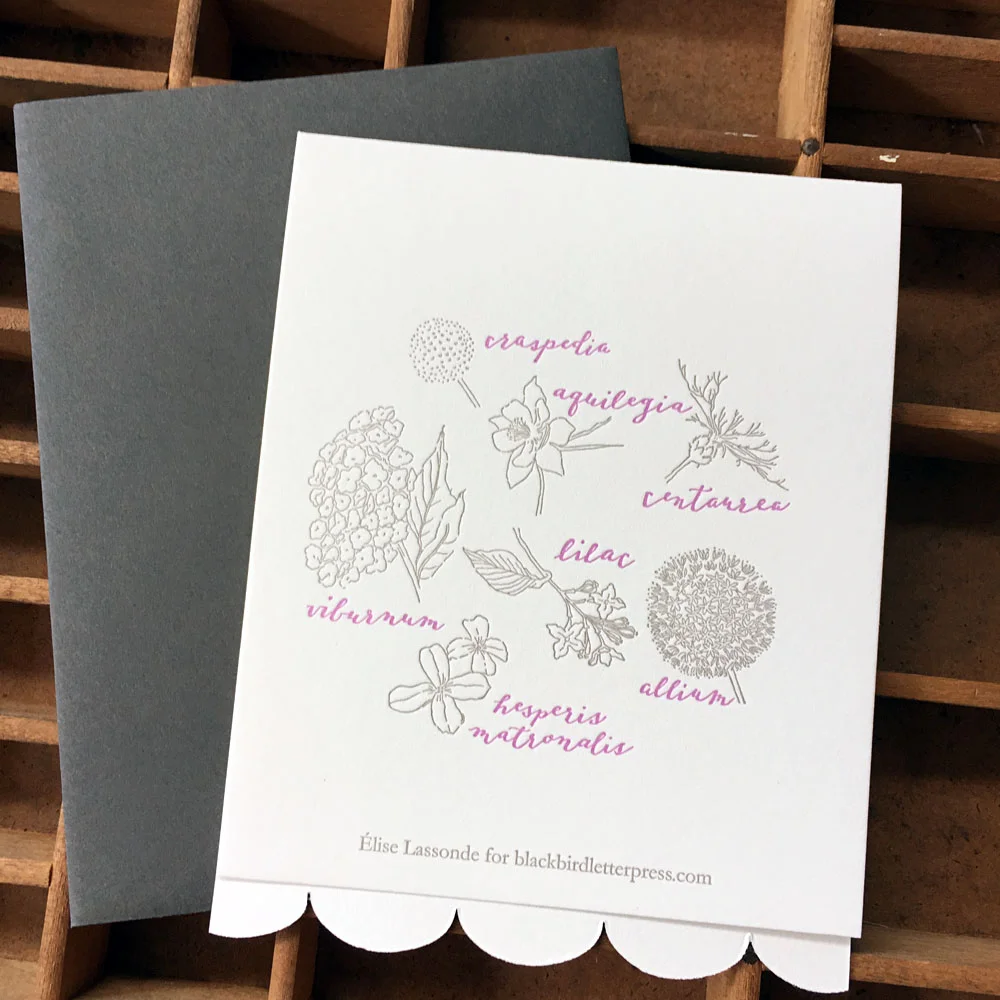 craspedia
aquilegia
centaurea
lilac
viburnum
allium
hesperis
matronalis
Élise Lassonde for blackbirdletterpress.com